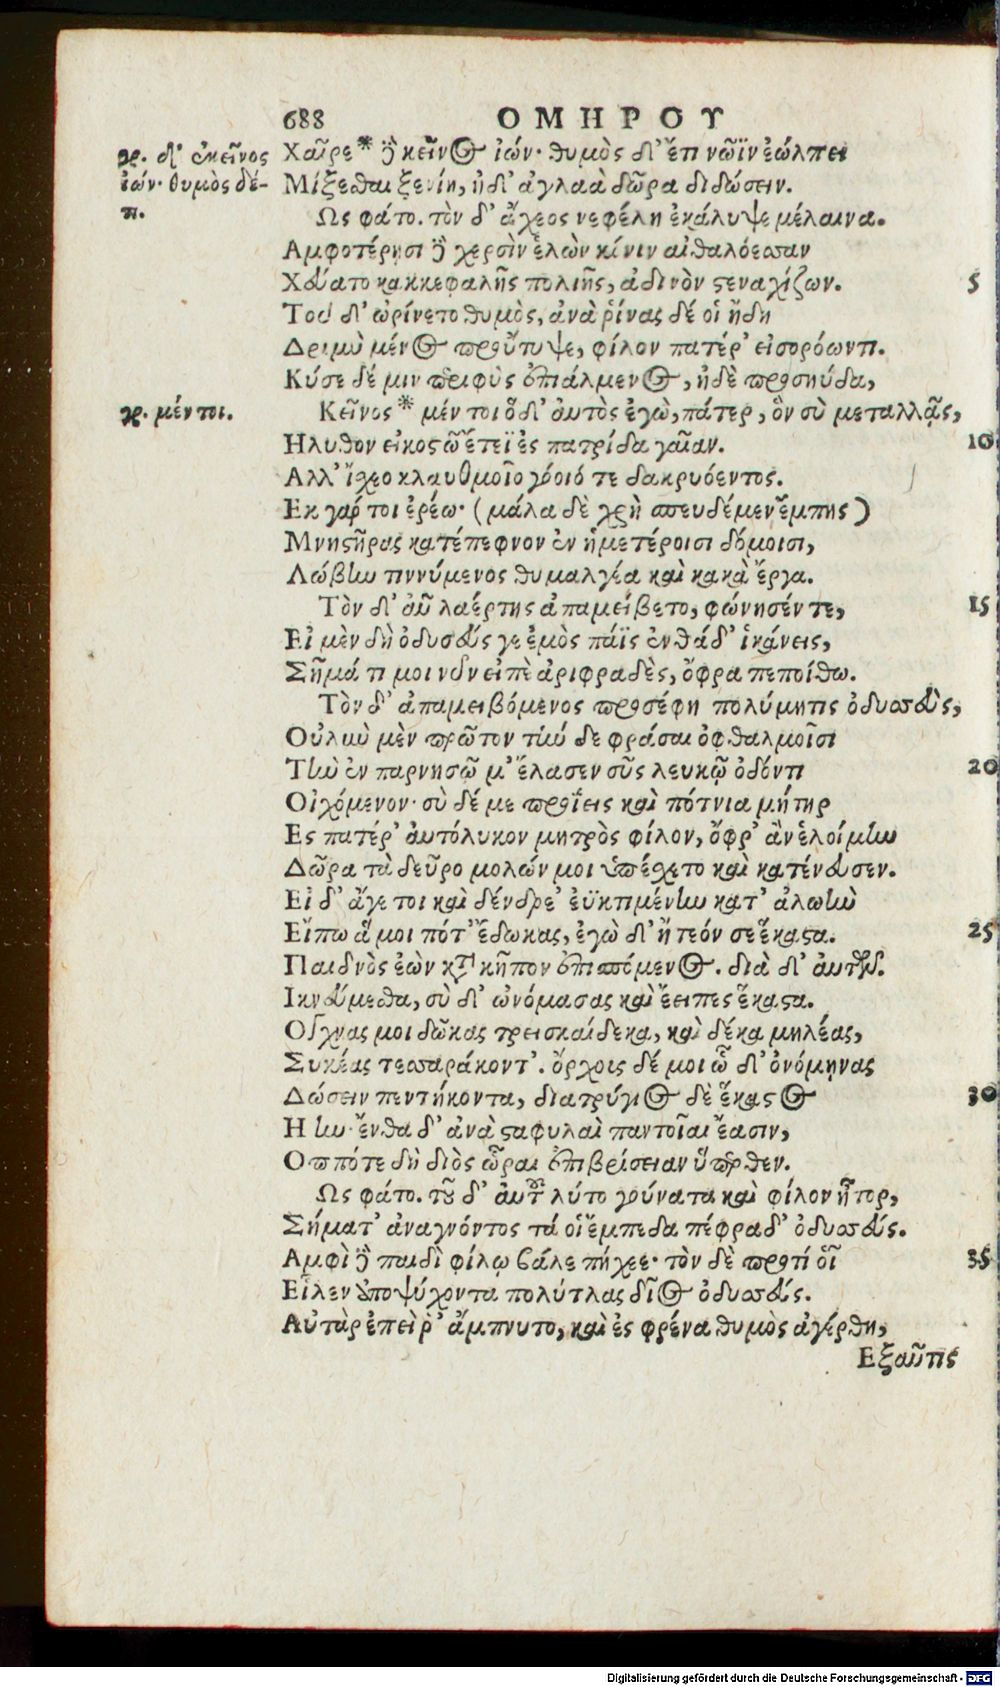 688 ΟΜΗΡΟΥ
γρ. δ' ἐκεῖνος
ἰών· θυμὸς δέ-
π.
Χαῖρε* δὲ κεῖνος ἰών· θυμὸς δ' ἔπι νῶϊν ἐώλπει
Μίξεσθαι ξενίῃ, ἠδ' ἀγλαὰ δῶρα διδώσειν.
Ως φάτο. τὸν δ' ἄχεος νεφέλη ἐκάλυψε μέλαινα.
Αμφοτέρησι δὲ χερσὶν ἑλὼν κίνιν αἰθαλόεσσαν
Χεύατο κακκεφαλῆς πολιῆς, ἀδινὸν στεναχίζων. 5
Τοῦ δ' ὠρίνετο θυμὸς, ἀνὰ ῥίνας δέ οἱ ἤδη
Δριμὺ μένος προὔτυψε, φίλον πατέρ' εἰσορόωντι.
Κύσε δέ μιν περιφὺς ἐπιάλμενος, ἠδὲ προσηύδα,
γρ. μέν τοι.
Κεῖνος* μέν τοι ὅδ' αὐτὸς ἐγὼ, πάτερ, ὃν σὺ μεταλλᾷς,
Ηλυθον εἰκοστῷ ἔτεϊ ἐς πατρίδα γαῖαν. 10
Αλλ' ἴσχεο κλαυθμοῖο γόοιό τε δακρυόεντος.
Εκ γάρ τοι ἐρέω· (μάλα δὲ χρὴ σπευδέμεν ἔμπης)
Μνηστῆρας κατέπεφνον ἐν ἡμετέροισι δόμοισι,
Λώβην τιννύμενος θυμαλγέα καὶ κακὰ ἔργα.
Τὸν δ' αὖ λαέρτης ἀπαμείβετο, φώνησέν τε, 15
Εἰ μὲν δὴ ὀδυσεύς γε ἐμὸς πάϊς ἐνθάδ' ἱκάνεις,
Σῆμά τι μοι νῦν εἰπὲ ἀριφραδὲς, ὄφρα πεποίθω.
Τὸν δ' ἀπαμειβόμενος προσέφη πολύμητις ὀδυσσεὺς,
Οὐλὴν μὲν πρῶτον τήν δε φράσαι ὀφθαλμοῖσι
Τὴν ἐν παρνησῷ μ' ἔλασεν σῦς λευκῷ ὀδόντι 20
Οἰχόμενον· σὺ δέ με προΐεις καὶ πότνια μήτηρ
Ες πατέρ' αὐτόλυκον μητρὸς φίλον, ὄφρ' ἂν ἑλοίμην
Δῶρα τὰ δεῦρο μολών μοι ὑπέσχετο καὶ κατένευσεν.
Εἰ δ' ἄγε τοι καὶ δένδρε' ἐϋκτιμένην κατ' ἀλωὴν
Εἴπω ἅ μοι πότ' ἔδωκας, ἐγὼ δ' ᾔτεόν σε ἕκαστα. 25
Παιδνὸς ἐὼν κατὰ κῆπον ἐπισπόμενος. διὰ δ' αὐτῶν.
Ικνεύμεσθα, σὺ δ' ὠνόμασας καὶ ἔειπες ἕκαστα.
Οἴχνας μοι δῶκας τρεισκαίδεκα, καὶ δέκα μηλέας,
Συκέας τεσσαράκοντ'. ὄρχοις δέ μοι ὧ δ' ὀνόμηνας
Δώσειν πεντήκοντα, διατρύγιος δὲ ἕκαστος 30
Η ην· ἔνθα δ' ἀνὰ σταφυλαὶ παντοῖαι ἔασιν,
Οππότε δὴ διὸς ὧραι ἐπιβρίσειαν ὕπερθεν.
Ως φάτο. τοῦ δ' αὐτοῦ λύτο γούνατα καὶ φίλον ἦτορ,
Σήματ' ἀναγνόντος τά οἱ ἔμπεδα πέφραδ' ὀδυσσεύς.
Αμφὶ δὲ παιδὶ φίλῳ βάλε πήχεε· τὸν δὲ προτί οἷ 35
Εἷλεν ἀποψύχοντα πολύτλας δῖος ὀδυσσεύς.
Αὐτὰρ ἐπεί ῥ' ἄμπνυτο, καὶ ἐς φρένα θυμὸς ἀγέρθη,
Εξαῦτις
Digitalisierung gefördert durch die Deutsche Forschungsgemeinschaft - DFG